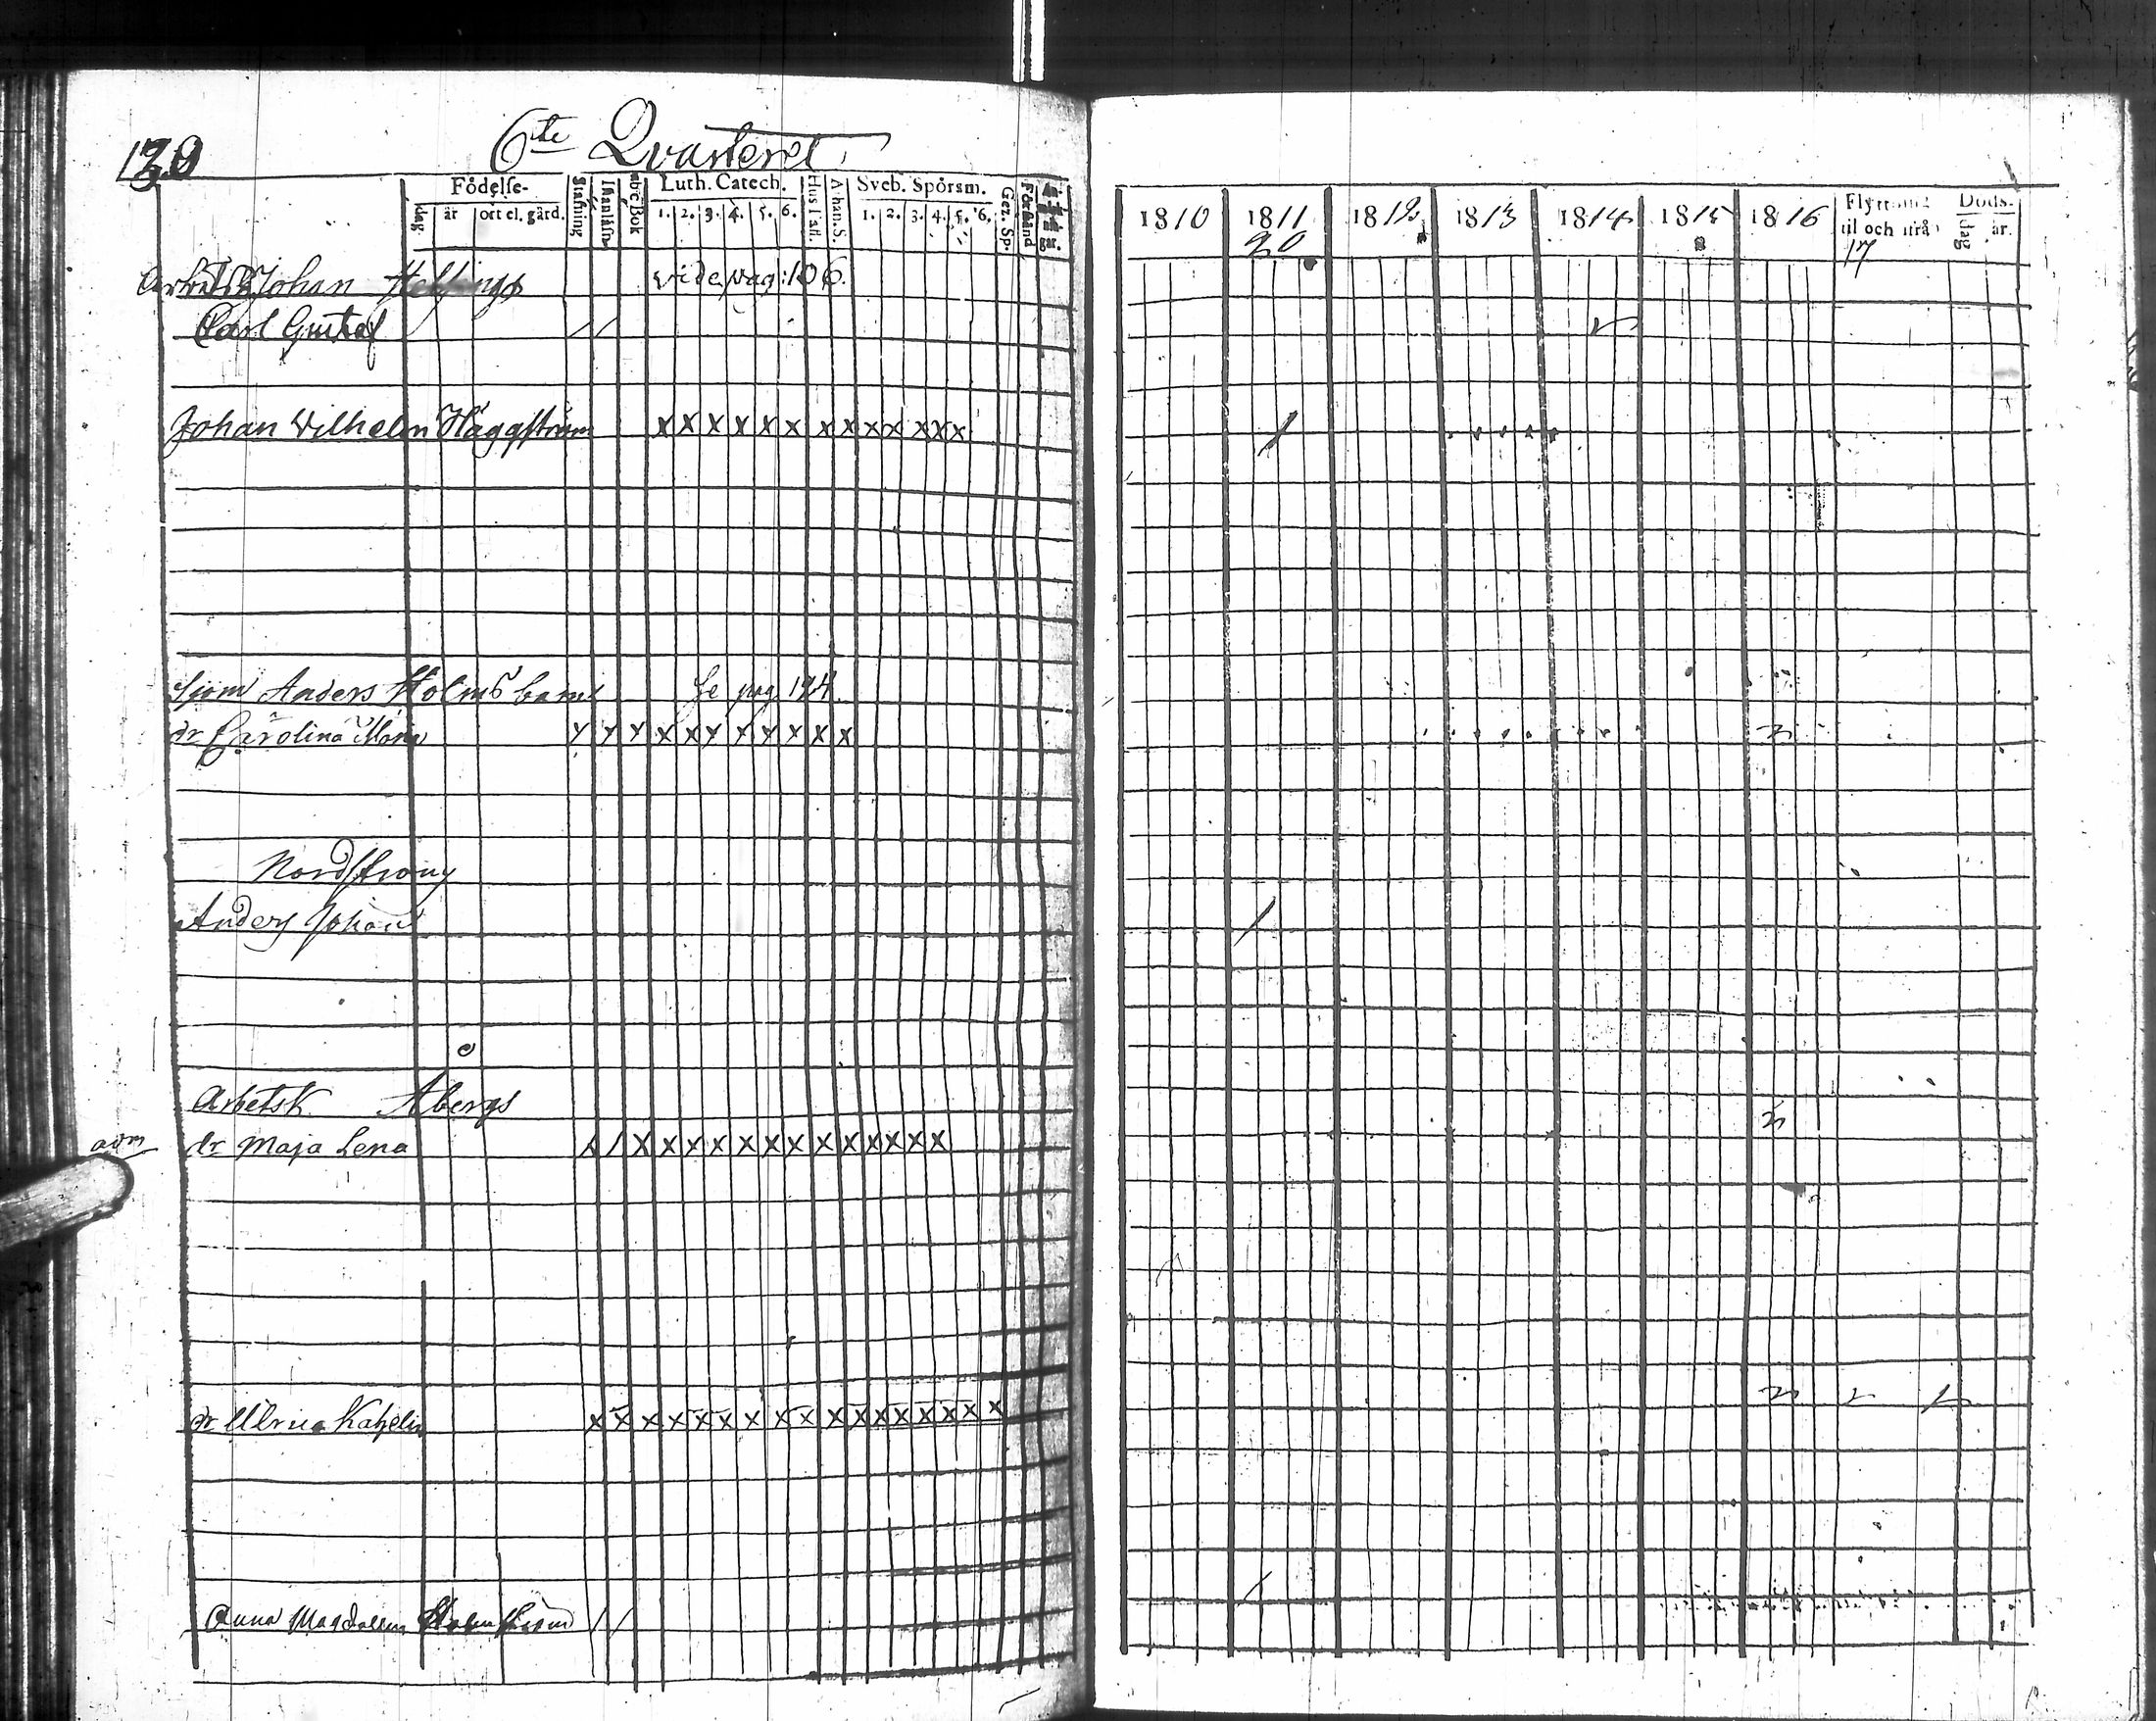 130
6te Qvarteret
Födelse-
dag
år
ort el. gård.
Stafning
Abc Bok
Luth. Catech.
1. 2. 3. 4. 5. 6.
Hus Tafl.
Athan. S.
Sveb. Spörsm.
1. 2. 3. 4. 5. 6.
Gez. Sp.
Förstånd
1810 1811 1812 1813 1814 1815 1816
20
Flyttand
til och ifrå
17
Döds-
dag
år.
Johan vide pag: 106.
Carl Gustaf
Johan Vilhelm Häggström x x x x x x x x x x x x x
Sjöm Anders Holms barn Se pag 124
dr Carolina Maria x x x x x x x x x x x
Nordström
Anders Johan
Arbetsk Åbergs
adm dr Maja Lena x / x x x x x x x x x x x x x
dr Ulrica x x x x x x x x x x x x x x x x x
Anna Magdalena Holmström / /